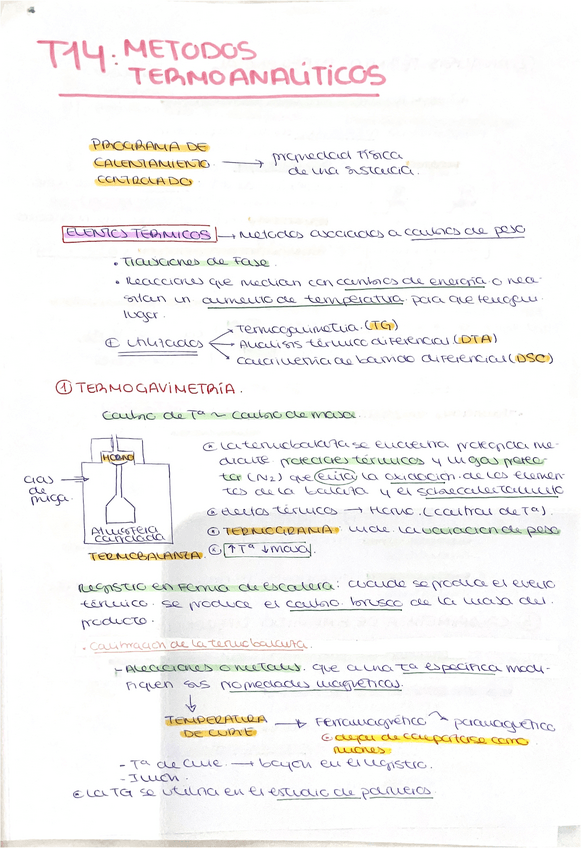 T14: METODOS
TERMOANALÍTICOS
PROGRAMA DE
CALENTAMIENTO
CONTROLADO
→ propiedad física
de una sustancia.
EVENTOS TÉRMICOS → Metodos asociados a cambios de peso
• Transiciones de Fase.
• Reacciones que median con cambios de energía o nece-
sitan un aumento de temperatura para que tengan
lugar.
utilizados
Termogravimetria. (TG)
Analisis térmico diferencial (DTA)
Calorimetria de barrido diferencial (DSC)
① TERMOGAVIMETRÍA.
Cambio de Tª ~ Cambio de masa.
HORNO
Atmosfera
controlada
TERMOBALANZA.
gas
de
purga.
La termobalanza se encuentra protegida me-
diante protectores térmicos y un gas protec-
tor (N2) que evita la oxidación de los elemen-
tos de la balanza y el sobrecalentamiento
eventos térmicos → Horno. (control de Tª).
TERMOGRAMA mide la variacion de peso
↑ Tª ↓ masa.
Registro en Forma de escalera: cuando se produce el evento
térmico. se produce el cambio brusco de la masa del
producto.
• Calibración de la termobalanza.
- Aleaciones o metales. que a una Tª especifica modi-
fiquen sus propiedades magnéticas.
↓
TEMPERATURA
DE CURIE
→ Ferromagnético ↷ paramagnético
dejar de comportarse como
imanes.
- Tª de curie. → bajon en el registro.
La TG se utiliza en el estudio de polimeros.